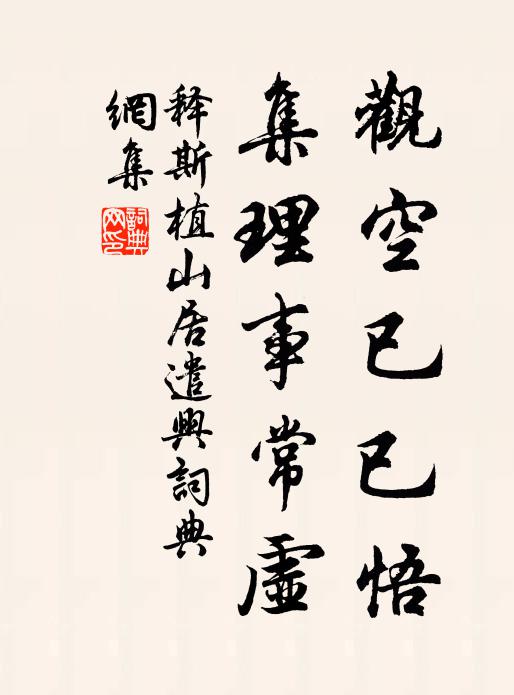 觀空已已悟
集理事常虛
释斯植山居遣興詞典
網集
詞典
网印